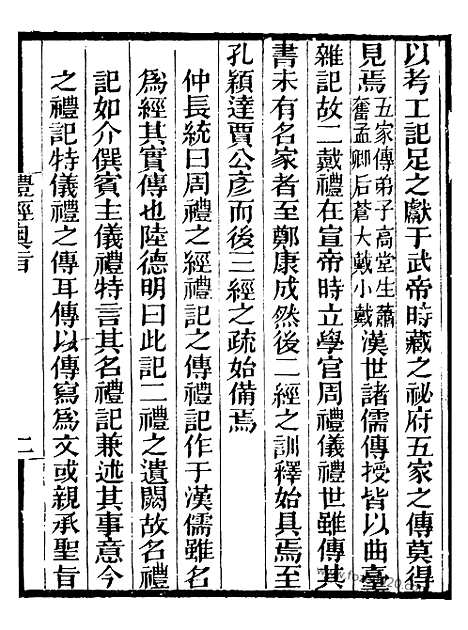 以考工記足之獻于武帝時藏之祕府五家之傳莫得
見焉五家傳弟子高堂生蕭
奮孟卿后蒼大戴小戴漢世諸儒傳授皆以曲臺
雜記故二戴禮在宣帝時立學官周禮儀禮世雖傳其
書未有名家者至鄭康成然後二經之訓釋始具焉至
孔穎達賈公彥而後三經之疏始備焉
仲長統曰周禮禮之經禮記禮之傳禮記作于漢儒雖名
為經其實傳也陸德明曰此記二禮之遺闕故名禮
記如介僎賓主儀禮特言其名禮記兼述其事意今
之禮記特儀禮之傳耳傳以傳寫為文或親承聖旨
禮經奧旨
二